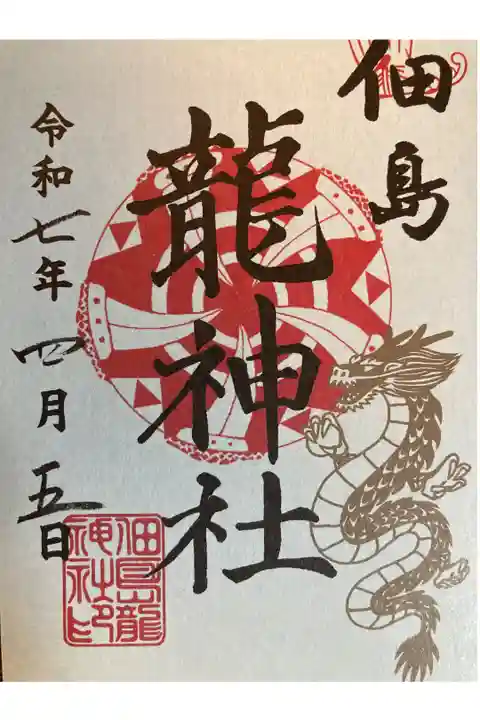 佃島
龍神社
令和七年四月五日
佃島龍
神社印